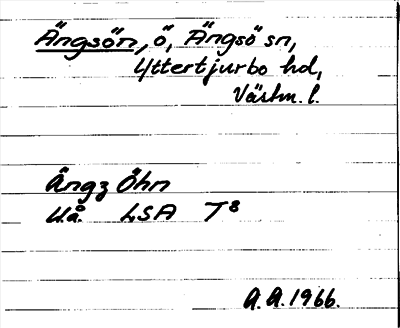 Ängsön, ö, Ängsö sn,
Yttertjurbo hd,
Västm. l.
Ängz Öhn
U.å. LSA T8
A.A. 1966.